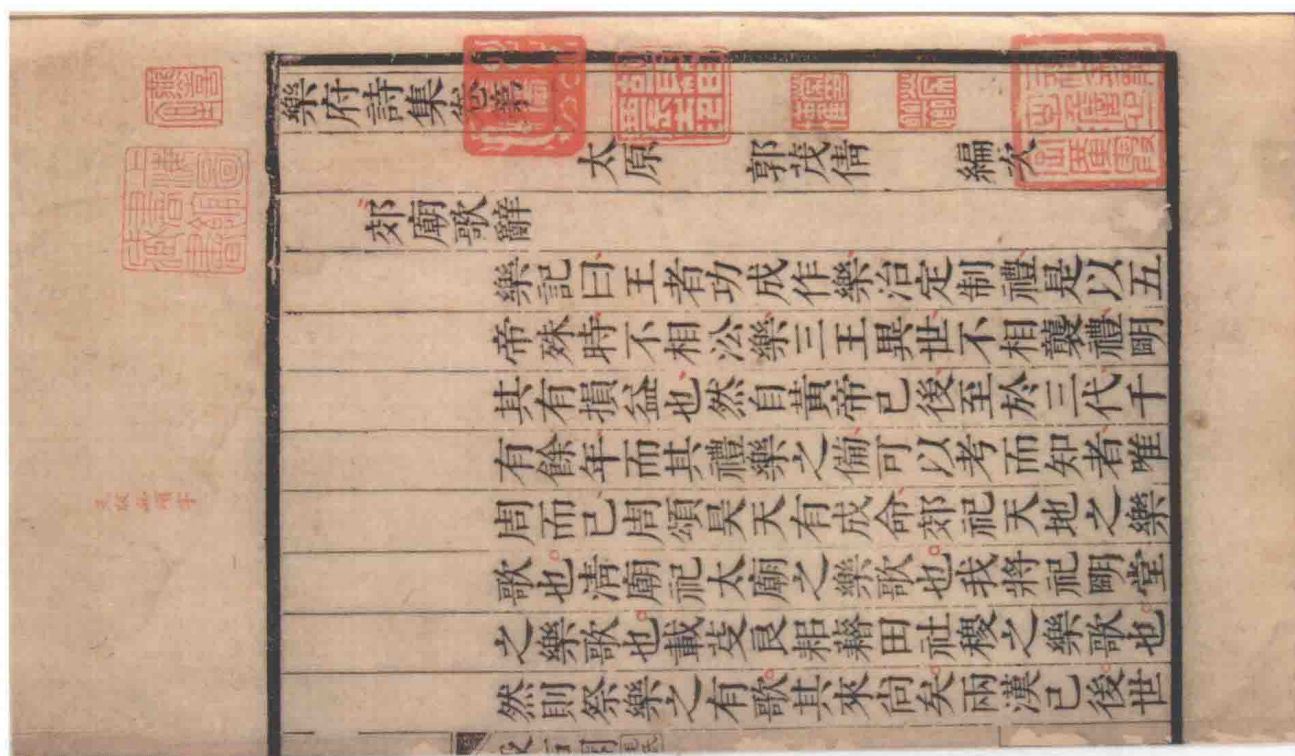 樂府詩集卷第
太原 郭茂倩 編次
郊廟歌辭
樂記曰王者功成作樂治定制禮是以五
帝殊時不相㳂樂三王異世不相襲禮眀
其有損益也然自黃帝已後至於三代千
有餘年而其禮樂之備可以考而知者唯
周而已周頌昊天有成命郊祀天地之樂
歌也清廟祀太廟之樂歌也我將祀眀堂
之樂歌也載芟良耜藉田社稷之樂歌也
然則祭樂之有歌其來尚矣兩漢已後世